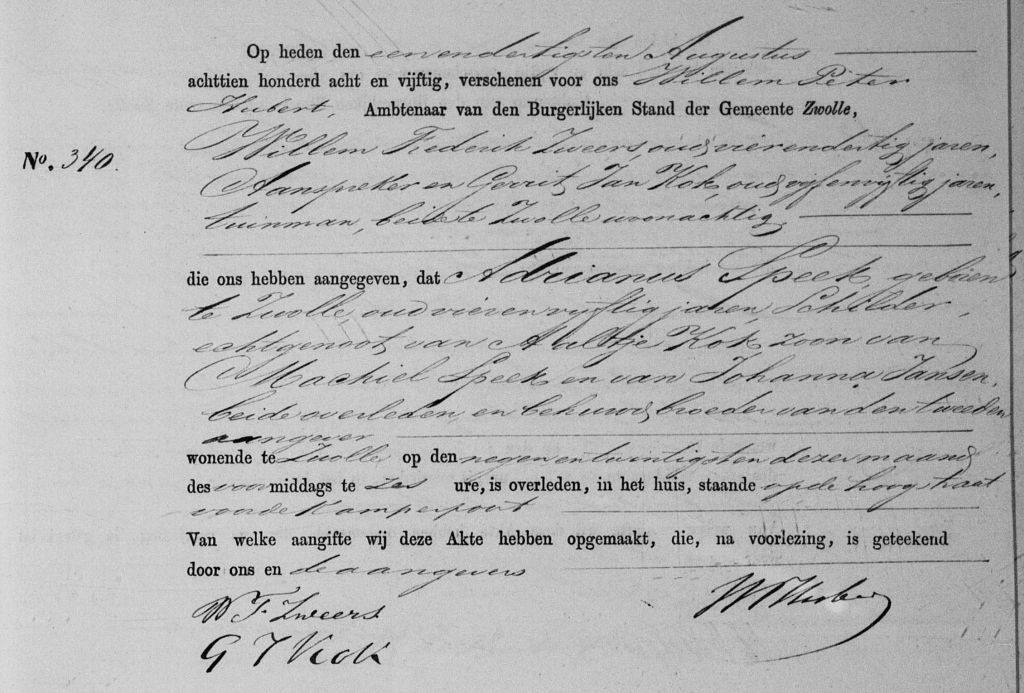 Op heden den eenendertigsten Augustus
achttien honderd acht en vijftig, verschenen voor ons Willem Peter
Hubert, Ambtenaar van den Burgerlijken Stand der Gemeente Zwolle,
Willem Frederik Zweers, oud vierendertig jaren,
No. 340.
Aanspreker en Gerrit Jan Kok, oud vyfenvyftig jaren,
tuinman, beide te Zwolle woonachtig
die ons hebben aangegeven, dat Adrianus Speek, geboren
te Zwolle, oud vierenvyftig jaren, Schilder,
echtgenoot van Aaltje Kok, zoon van
Machiel Speek en van Johanna Jansen,
beide overleden, en behuwd broeder van den tweeden
aangever
wonende te Zwolle op den negenentwintigsten dezer maand
des voormiddags te zes ure, is overleden, in het huis, staande op de hoogstraat
voor de Kamperpoort
Van welke aangifte wij deze Akte hebben opgemaakt, die, na voorlezing, is geteekend
door ons en de aangevers
W F Zweers
G J Kok